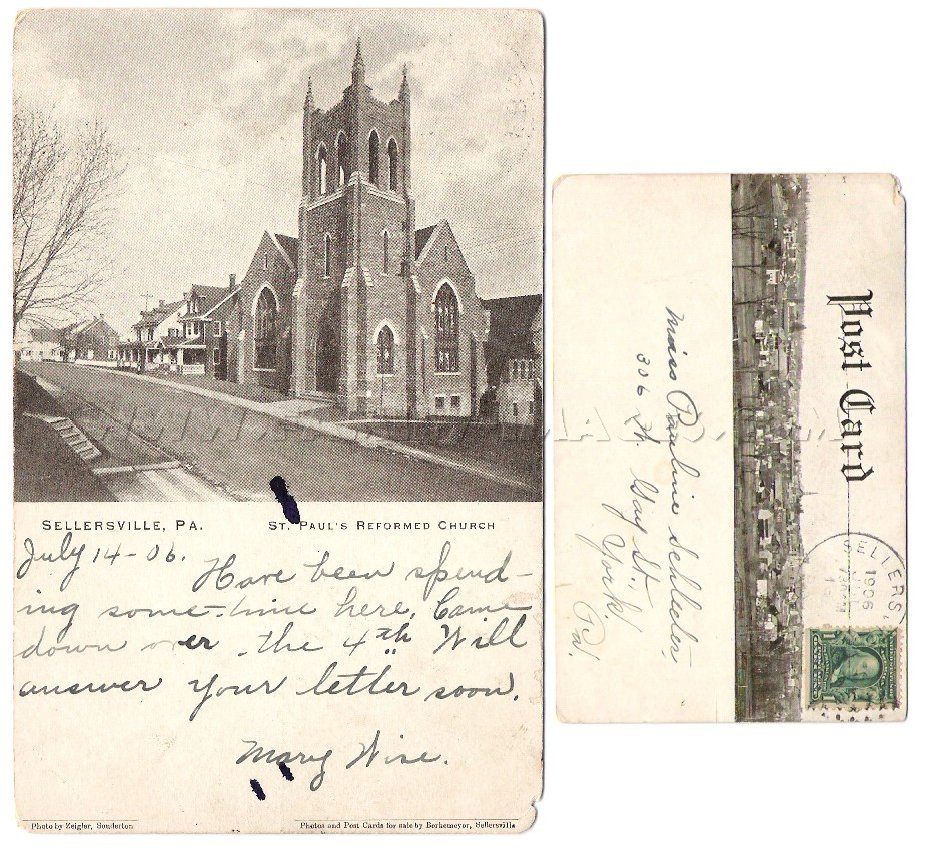 SELLERSVILLE, PA. ST. PAUL'S REFORMED CHURCH
July 14-06.
Have been spend-
ing some-time here. Came
down over the 4th Will
answer your letter soon.
Mary Wise.
Photo by Zeigler, Souderton
Photos and Post Cards for sale by Berkemeyer, Sellersville
Post Card
Miss Pauline Schleder,
306 W. Gay St.
York,
Pa.
SELLERS
1906